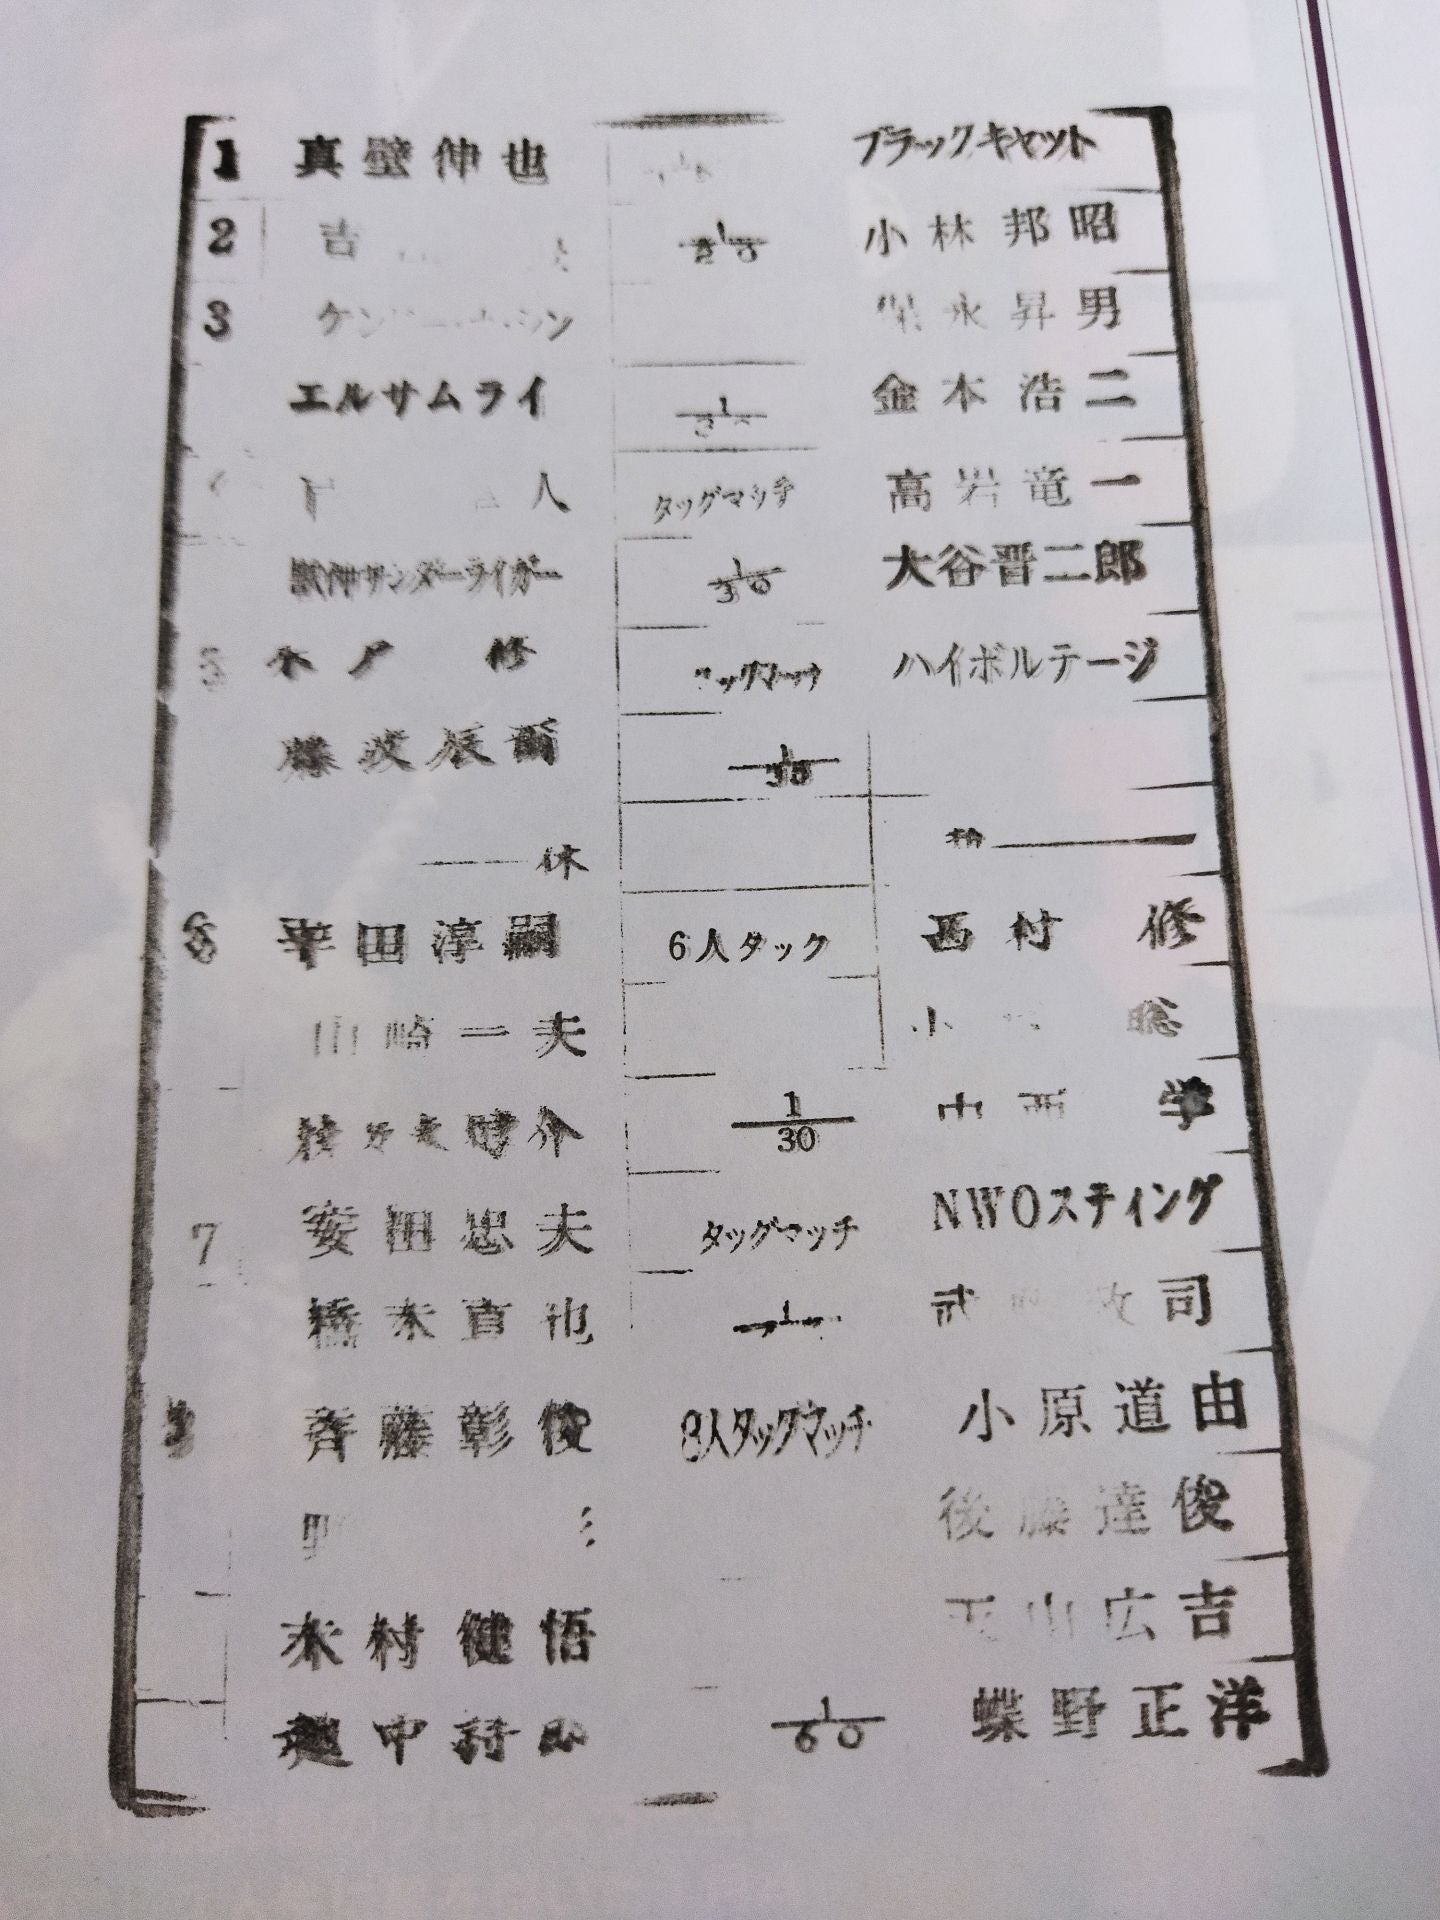 1 真壁伸也 ブラックキャット
2 吉 1/20 小林邦昭
3 ケン シン 保永昇男
エルサムライ 1/30 金本浩二
人 タッグマッチ 高岩竜一
獣神サンダーライガー 1/30 大谷晋二郎
5 木戸 修 タッグマッチ ハイボルテージ
藤波辰爾 1/30
休 憩
6 平田淳嗣 6人タック 西村 修
山崎一夫 小 聡
佐々木健介 1/30 中西 学
7 安田忠夫 タッグマッチ NWOスティング
橋本真也 1 武 敬司
斉藤彰俊 8人タッグマッチ 小原道由
野 後藤達俊
木村健悟 天山広吉
越中詩郎 1/60 蝶野正洋